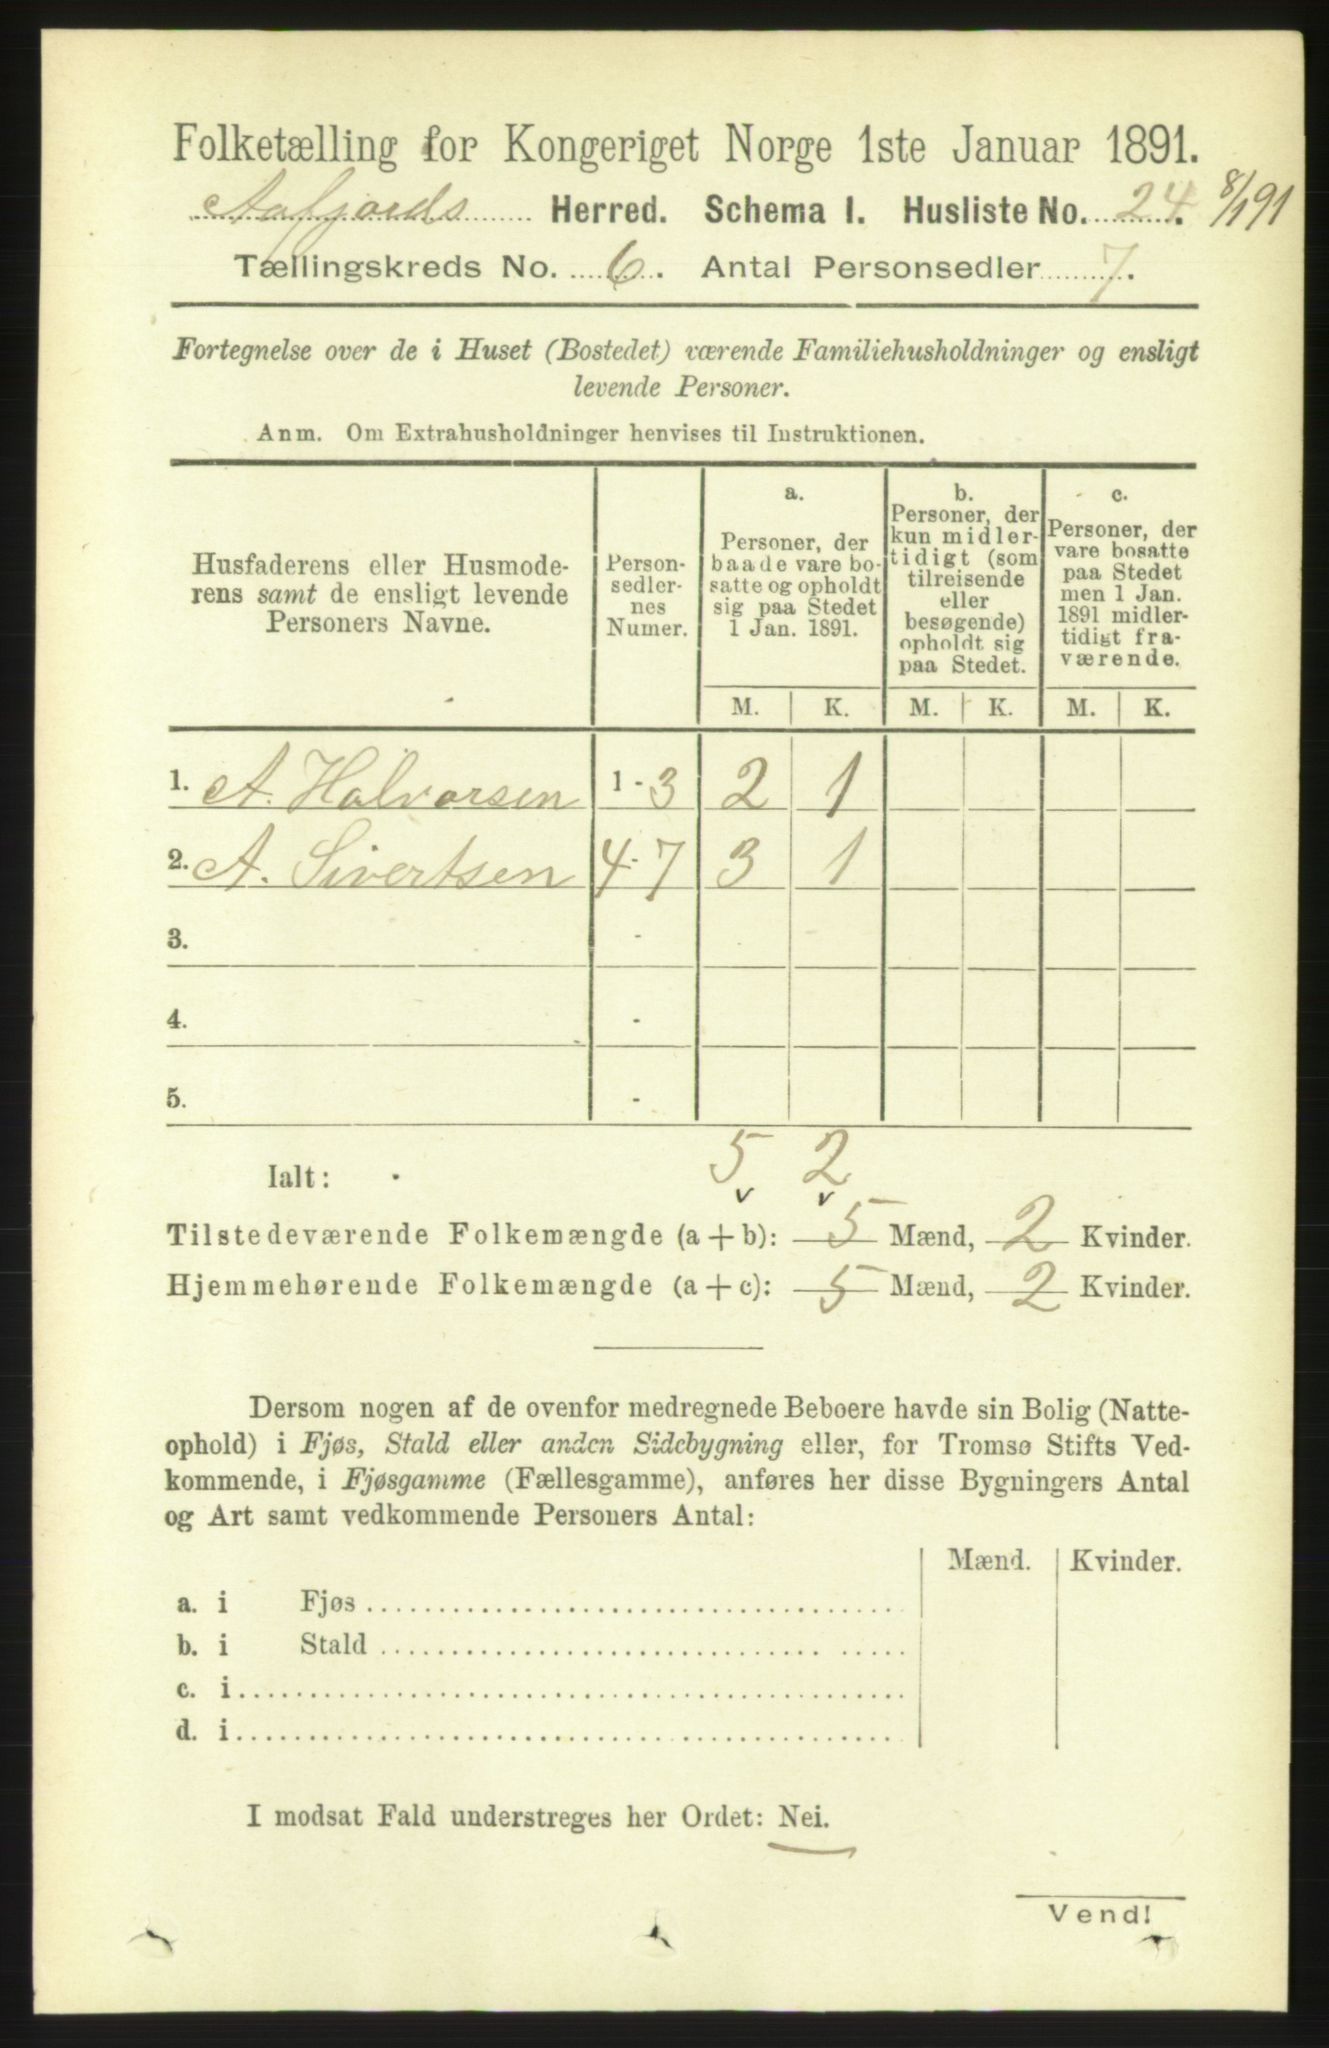 Folketælling for Kongeriget Norge 1ste Januar 1891.
Aafjords Herred. Schema I. Husliste No. 24. 8/1 91
Tællingskreds No. 6. Antal Personsedler 7.
Fortegnelse over de i Huset (Bostedet) værende Familiehusholdninger og ensligt
levende Personer.
Anm. Om Extrahusholdninger henvises til Instruktionen.
Husfaderens eller Husmode-
rens samt de ensligt levende
Personers Navne.
Person-
sedler-
nes
Numer.
a.
Personer, der
baade vare bo-
satte og opholdt
sig paa Stedet
1 Jan. 1891.
b.
Personer, der
kun midler-
tidigt (som
tilreisende
eller
besøgende)
opholdt sig
paa Stedet.
c.
Personer, der
vare bosatte
paa Stedet
men 1 Jan.
1891 midler-
tidigt fra-
værende.
M. K. M. K. M. K.
1. A. Halvorsen 1-3 2 1
2. A. Sivertsen 4-7 3 1
3. -
4. -
5. -
Ialt: 5 2
Tilstedeværende Folkemængde (a+b): 5 Mænd, 2 Kvinder.
Hjemmehørende Folkemængde (a+c): 5 Mænd, 2 Kvinder.
Dersom nogen af de ovenfor medregnede Beboere havde sin Bolig (Natte-
ophold) i Fjøs, Stald eller anden Sidebygning eller, for Tromsø Stifts Ved-
kommende, i Fjøsgamme (Fællesgamme), anføres her disse Bygningers Antal
og Art samt vedkommende Personers Antal:
Mænd. Kvinder.
a. i Fjøs
b. i Stald
c. i
d. i
I modsat Fald understreges her Ordet: Nei.
Vend!